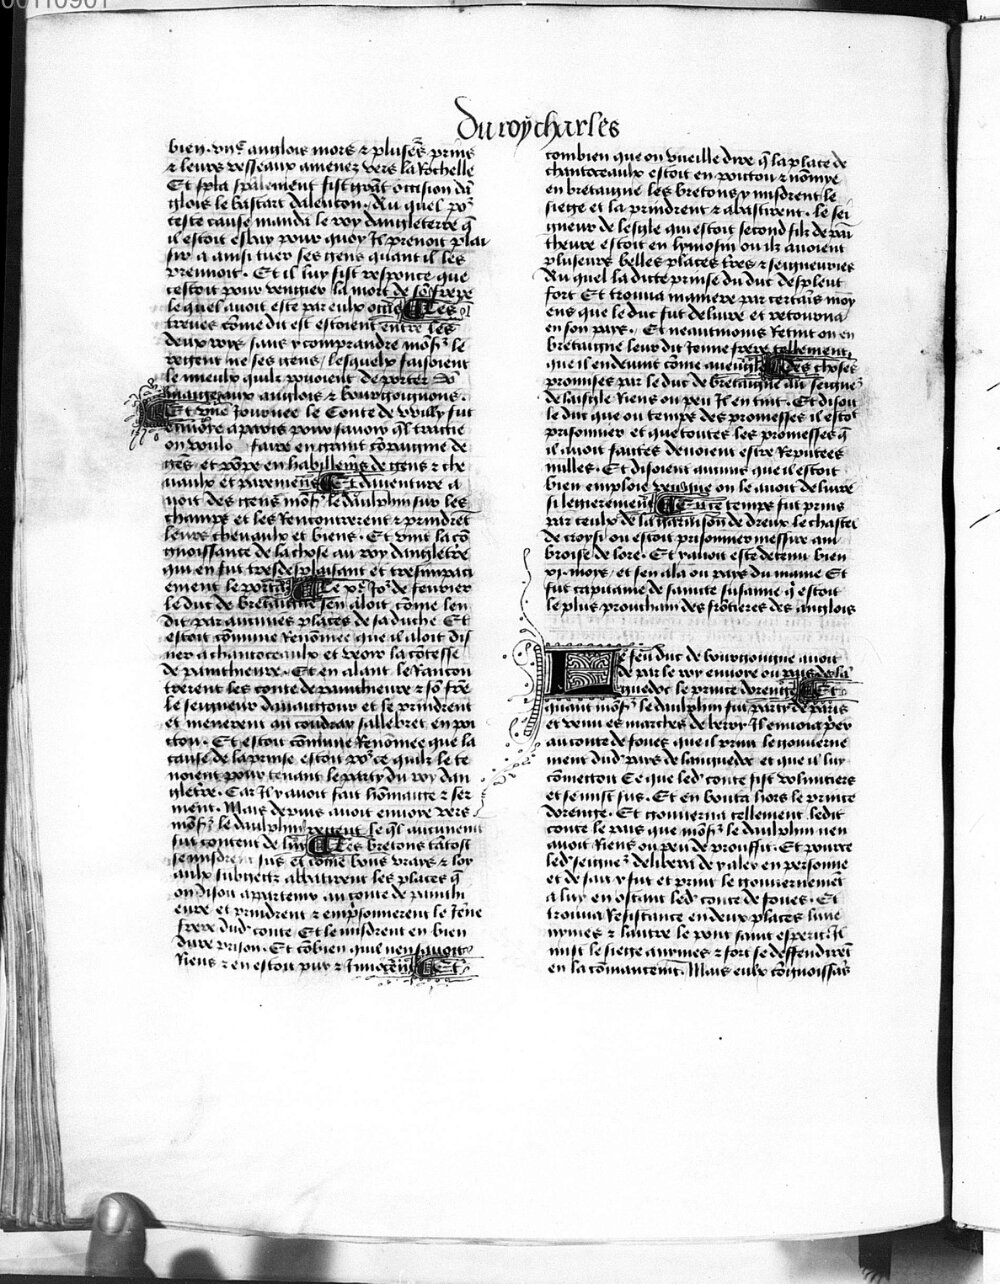 00110901
Du roy charles
bien vii^c anglois mors & pluseᷤ prins
& leurs vesseaulx amenez vers la Rochelle
Et fist grāt occision dā
glois le bastart dalencon. Au quel po^r
ceste cause manda le roy dangleterre q̄
il estoit esbay pour quoy Il prenoit plai
sir a ainsi tuer ses gens quant il les
prennoit. Et il luy fist responce que
cestoit pour vengier la mort de sō frere
le quel auoit este par eulx occis Les
treues cōme dit est estoient entre les
deux roys sans y comprandre mōs^r le
regent ne ses gens / lesquelx faisoient
le mieulx quilz pouoient de porter dō
maige aux anglois & bourgoignons.
Et vne Journee le Conte de fut
enuoye a paris pour sauoir q̄l traictie
on vouloit faire en grant cōpaignie de
gēs et pōpe en habillemēs de gens & che
uaulx et paremens Et dauenture a
uoit des gens mōs^r le daulphin sur les
champs et les Rencontrerent & prindrēt
leurs cheuaulx et biens. Et vint la cō
gnoissance de la chose au roy dangletēre
qui en fut tres desplaisant et tres impaci
ement le porta Le Jo^r de feurier
le duc de bretaigne sen aloit cōme len
dit par aucunes places de sa duche Et
estoit commune Renōmee que il aloit dis
ner a chantoceaulx et veoir la cōtesse
de painthieure. Et en alant le Rancon
trerent les conte de painthieure & sō frē
le seigneur dauaugour et le prindrent
et menerent au coudray sallebret en poi
ctou. Et estoit cōmune Renōmee que la
cause de la prinse estoit po^r ce quilz le te
noient pour tenant le party du roy dan
gletēre. Car Il y auoit fait hōmaige & ser
ment. Mais depuis auoit enuoye vers
mōs^r le daulphin regent le q̄l aucunemᵗ
fut content de luy Les bretons tātost
se misdrent sus et cōme bons vrays & loy
aulx subgectz abbatirent les places q̄
on disoit appartenir au conte de painthi
eure et prindrent & emp̄sonnerent le Jēne
frere dud^t conte Et le misdrent en bien
dure prison. Et cōbien quil nen sauoit
Riens & en estoit pur & Innocent Et
combien que on vueille dire q̄ la place de
chantoceaulx estoit en poictou & nōmye
en bretaigne les bretons y misdrent le
siege et la prindrent & abatirent. le sei
gneur de lesgle qui estoit second filz de pain
thieure estoit en lymosin ou ilz auoient
plusieurs belles places & seigneuries
Au quel la dicte prinse du duc despleut
fort Et trouua maniere par certains moy
ens que le duc fut deliure et retourna
en son pays. Et neautmoins Retint on en
bretaigne leur dit Jenne frere tellement,
que il en deuint cōme aueugle Des choses
promises par le duc de bretaigne au seigne^r
de laisgle Riens ou peu Il en tint. Et disoit
le duc que ou temps des promesses il estoit
prisonnier et que toutes les promesses q̄
il auoit faictes deuoient estre Reputees
nulles. Et disoient aucuns que il estoit
bien emploie puisque on le auoit deliure
si legierement En ce temps fut prins
par ceulx de la garnison de dreux le chastel
de croisy ou estoit prisonnier messire am
broise de lore. Et y auoit este detenu bien
xi. mois / et sen ala ou pays du maine Et
fut capitaine de saincte susanne q̄ estoit
le plus prouchain des frōtieres des anglois
Le feu duc de bourgoigne auoit
de par le roy enuoye ou pays de la
guedoc le prince dorenge Et
quant mōs^r le daulphin fut party de paris
et venu es marches de berry Il enuoia p̄er
au conte de foues que il print le gouuerne
ment dud^t pays de languedoc et que il luy
cōmettoit Ce que led^t conte fist voluntiers
et se mist sus. Et en bouta hors le prince
dorenge. Et gouuerna tellement ledit
conte le pais que mōs^r le daulphin nen
auoit Riens ou peu de prouffit. Et pource
led^t seigne^r delibera de y aler en personne
et de fait y fut et print le gouuernement
a luy en ostant led^t conte de foues. Et
trouua Resistance en deux places lune
nymes & lautre le pont saint esperit. Il
mist le siege a nymes & fort se deffendirēt
en la cōmancemt. Mais eulx cōgnoissās